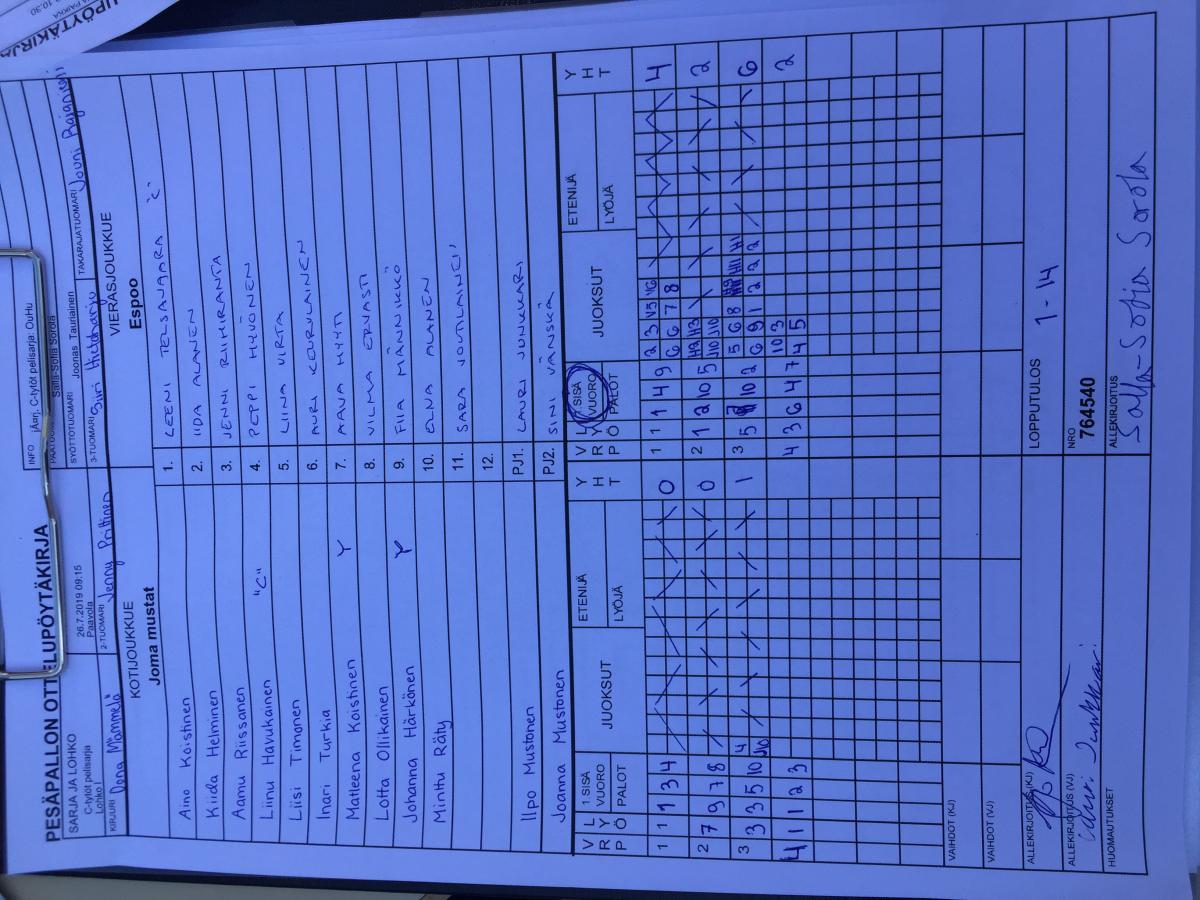 PESÄPALLON OTTELUPÖYTÄKIRJA
SARJA JA LOHKO
C-tytöt pelisarja
Lohko I
26.7.2019 09:15
Paavola
INFO jÄsrj, C-tytöt pelisarja: OuHu
Salla-Sofia Sorola
SYÖTTÖTUOMARI Joonas Tauriainen
KIRJURI Oona Mämmelä
2-TUOMARI Jenny Prittinen
3-TUOMARI Siiri Hietaharju
TAKARAJATUOMARI Jouni Rajaniemi
KOTIJOUKKUE
Joma mustat
VIERASJOUKKUE
Espoo
Aino Koistinen 1. LEENI TELSAVAARA "C"
Kiida Helminen 2. IIDA ALANEN
Aamu Riissanen 3. JENNI RIIHIRANTA
Liinu Havukainen "C" 4. PEPPI HYVÖNEN
Liisi Timonen 5. LIINA VIRTA
Inari Turkia 6. AURI KEURULAINEN
Matleena Koistinen Y 7. AAVA HYTTI
Lotta Ollikainen 8. VILMA ERVASTI
Johanna Härkönen Y 9. FIIA MÄNNIKKÖ
Minttu Räty 10. ELNA ALANEN
11. SARA VOUTILAINEN
12.
Ilpo Mustonen PJ1. LAURI JUNKKARI
Joanna Mustonen PJ2. SINI VÄNSKÄ
VRP LYÖ 1.SISÄ VUORO PALOT JUOKSUT ETENIJÄ LYÖJÄ YHT
VRP LYÖ 1.SISÄ VUORO PALOT JUOKSUT ETENIJÄ LYÖJÄ YHT
1 1 1 3 4 0
1 1 1 4 9 2 3 V5 V6 4
6 6 7 8
2 7 9 7 8 0
2 1 2 10 5 H2 H3 2
J10 J10
3 3 3 5 10 4 1
J10
3 5 10 2 5 6 8 6
6 9 1 2 2 2
4 1 1 2 3
4 3 6 4 7 10 3 2
4 5
VAIHDOT (KJ)
VAIHDOT (VJ)
ALLEKIRJOITUS (KJ)
LOPPUTULOS 1 - 14
ALLEKIRJOITUS (VJ) Lauri Junkkari
NRO
764540
HUOMAUTUKSET
ALLEKIRJOITUS
Salla-Sofia Sorola